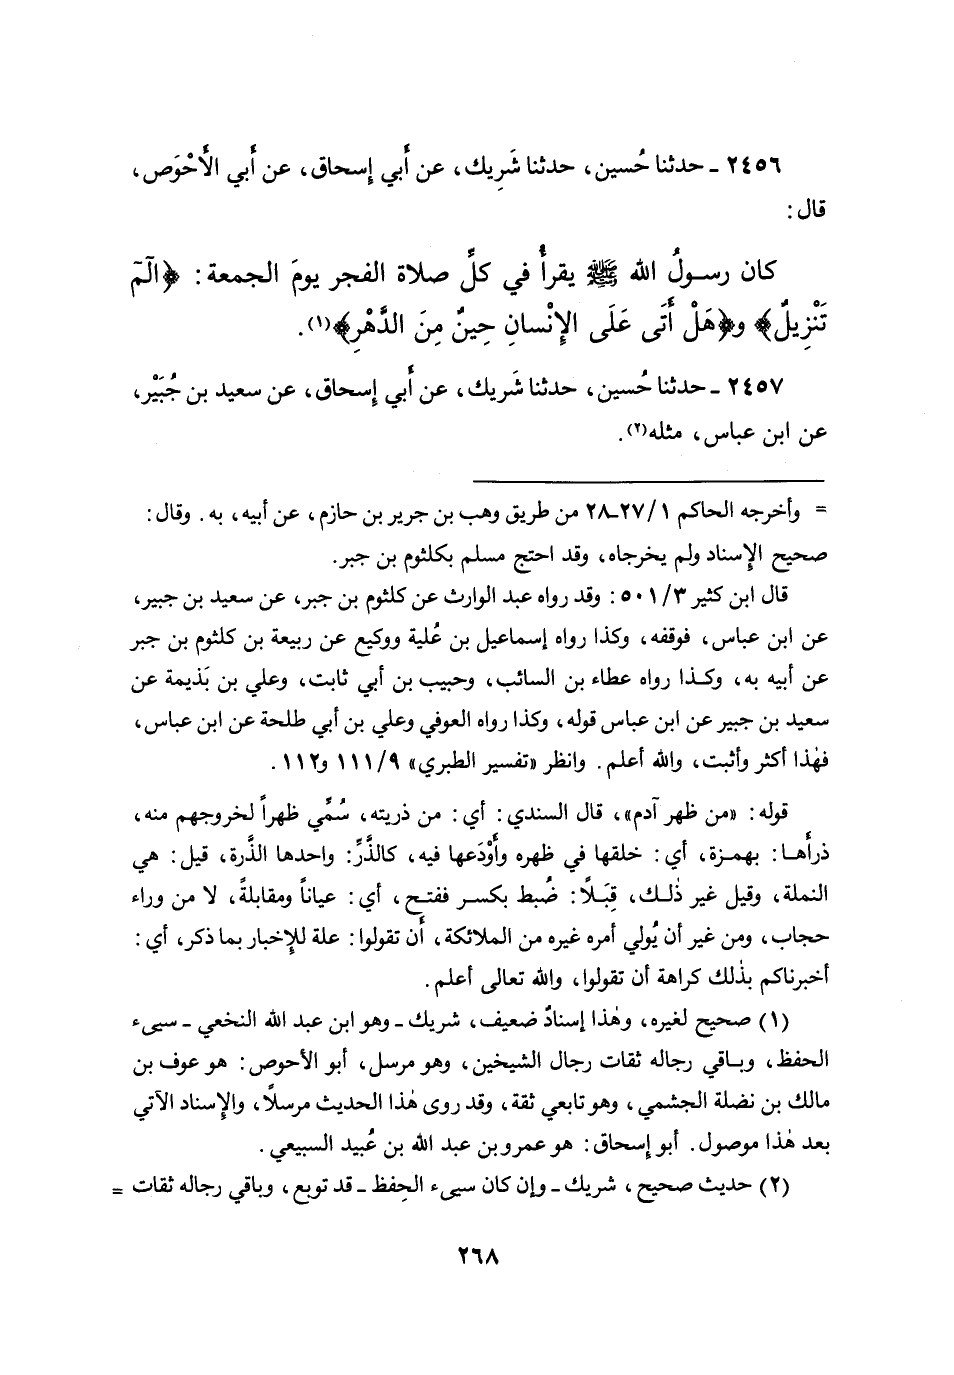 ٢٤٥٦ ـ حدثنا حُسين، حدثنا شَرِيك، عن أَبي إسحاق، عن أَبي الأَحْوَص،
قال:
كان رسولُ الله ﷺ يقرأُ في كلِّ صلاة الفجر يومَ الجمعة: ﴿الٓمٓ
تَنْزِيلٌ﴾ و﴿هَلْ أَتَى عَلَى الإِنْسانِ حِينٌ مِنَ الدَّهْرِ﴾(١).
٢٤٥٧ ـ حدثنا حُسين، حدثنا شَريك، عن أَبي إسحاق، عن سعيد بن جُبَيْر،
عن ابن عباس، مثله(٢).
= وأخرجه الحاكم ١/ ٢٧ـ٢٨ من طريق وهب بن جرير بن حازم، عن أبيه، به. وقال:
صحيح الإسناد ولم يخرجاه، وقد احتج مسلم بكلثوم بن جبر.
قال ابن كثير ٣/ ٥٠١: وقد رواه عبد الوارث عن كلثوم بن جبر، عن سعيد بن جبير،
عن ابن عباس، فوقفه، وكذا رواه إسماعيل بن عُلية ووكيع عن ربيعة بن كلثوم بن جبر
عن أبيه به، وكذا رواه عطاء بن السائب، وحبيب بن أبي ثابت، وعلي بن بَذيمة عن
سعيد بن جبير عن ابن عباس قوله، وكذا رواه العوفي وعلي بن أبي طلحة عن ابن عباس،
فهٰذا أكثر وأثبت، والله أعلم. وانظر «تفسير الطبري» ٩/ ١١١ و١١٢.
قوله: «من ظهر آدم»، قال السندي: أي: من ذريته، سُمِّي ظهراً لخروجهم منه،
ذرأها: بهمزة، أي: خلقها في ظهره وأَوْدَعها فيه، كالذَّرِّ: واحدها الذَّرة، قيل: هي
النملة، وقيل غير ذٰلك، قِبَلًا: ضُبط بكسر ففتح، أي: عياناً ومقابلةً، لا من وراء
حجاب، ومن غير أن يُولي أمره غيره من الملائكة، أَن تقولوا: علة للإخبار بما ذكر، أي:
أخبرناكم بذٰلك كراهة أن تقولوا، والله تعالى أعلم.
(١) صحيح لغيره، وهٰذا إسنادٌ ضعيف، شريك ـ وهو ابن عبد الله النخعي ـ سيىء
الحفظ، وباقي رجاله ثقات رجال الشيخين، وهو مرسل، أبو الأحوص: هو عوف بن
مالك بن نضلة الجشمي، وهو تابعي ثقة، وقد روى هٰذا الحديث مرسلًا، والإسناد الآتي
بعد هٰذا موصول. أبو إسحاق: هو عمرو بن عبد الله بن عُبيد السبيعي.
(٢) حديث صحيح، شريك ـ وإن كان سيىء الحِفظ ـ قد توبع، وباقي رجاله ثقات =
٢٦٨